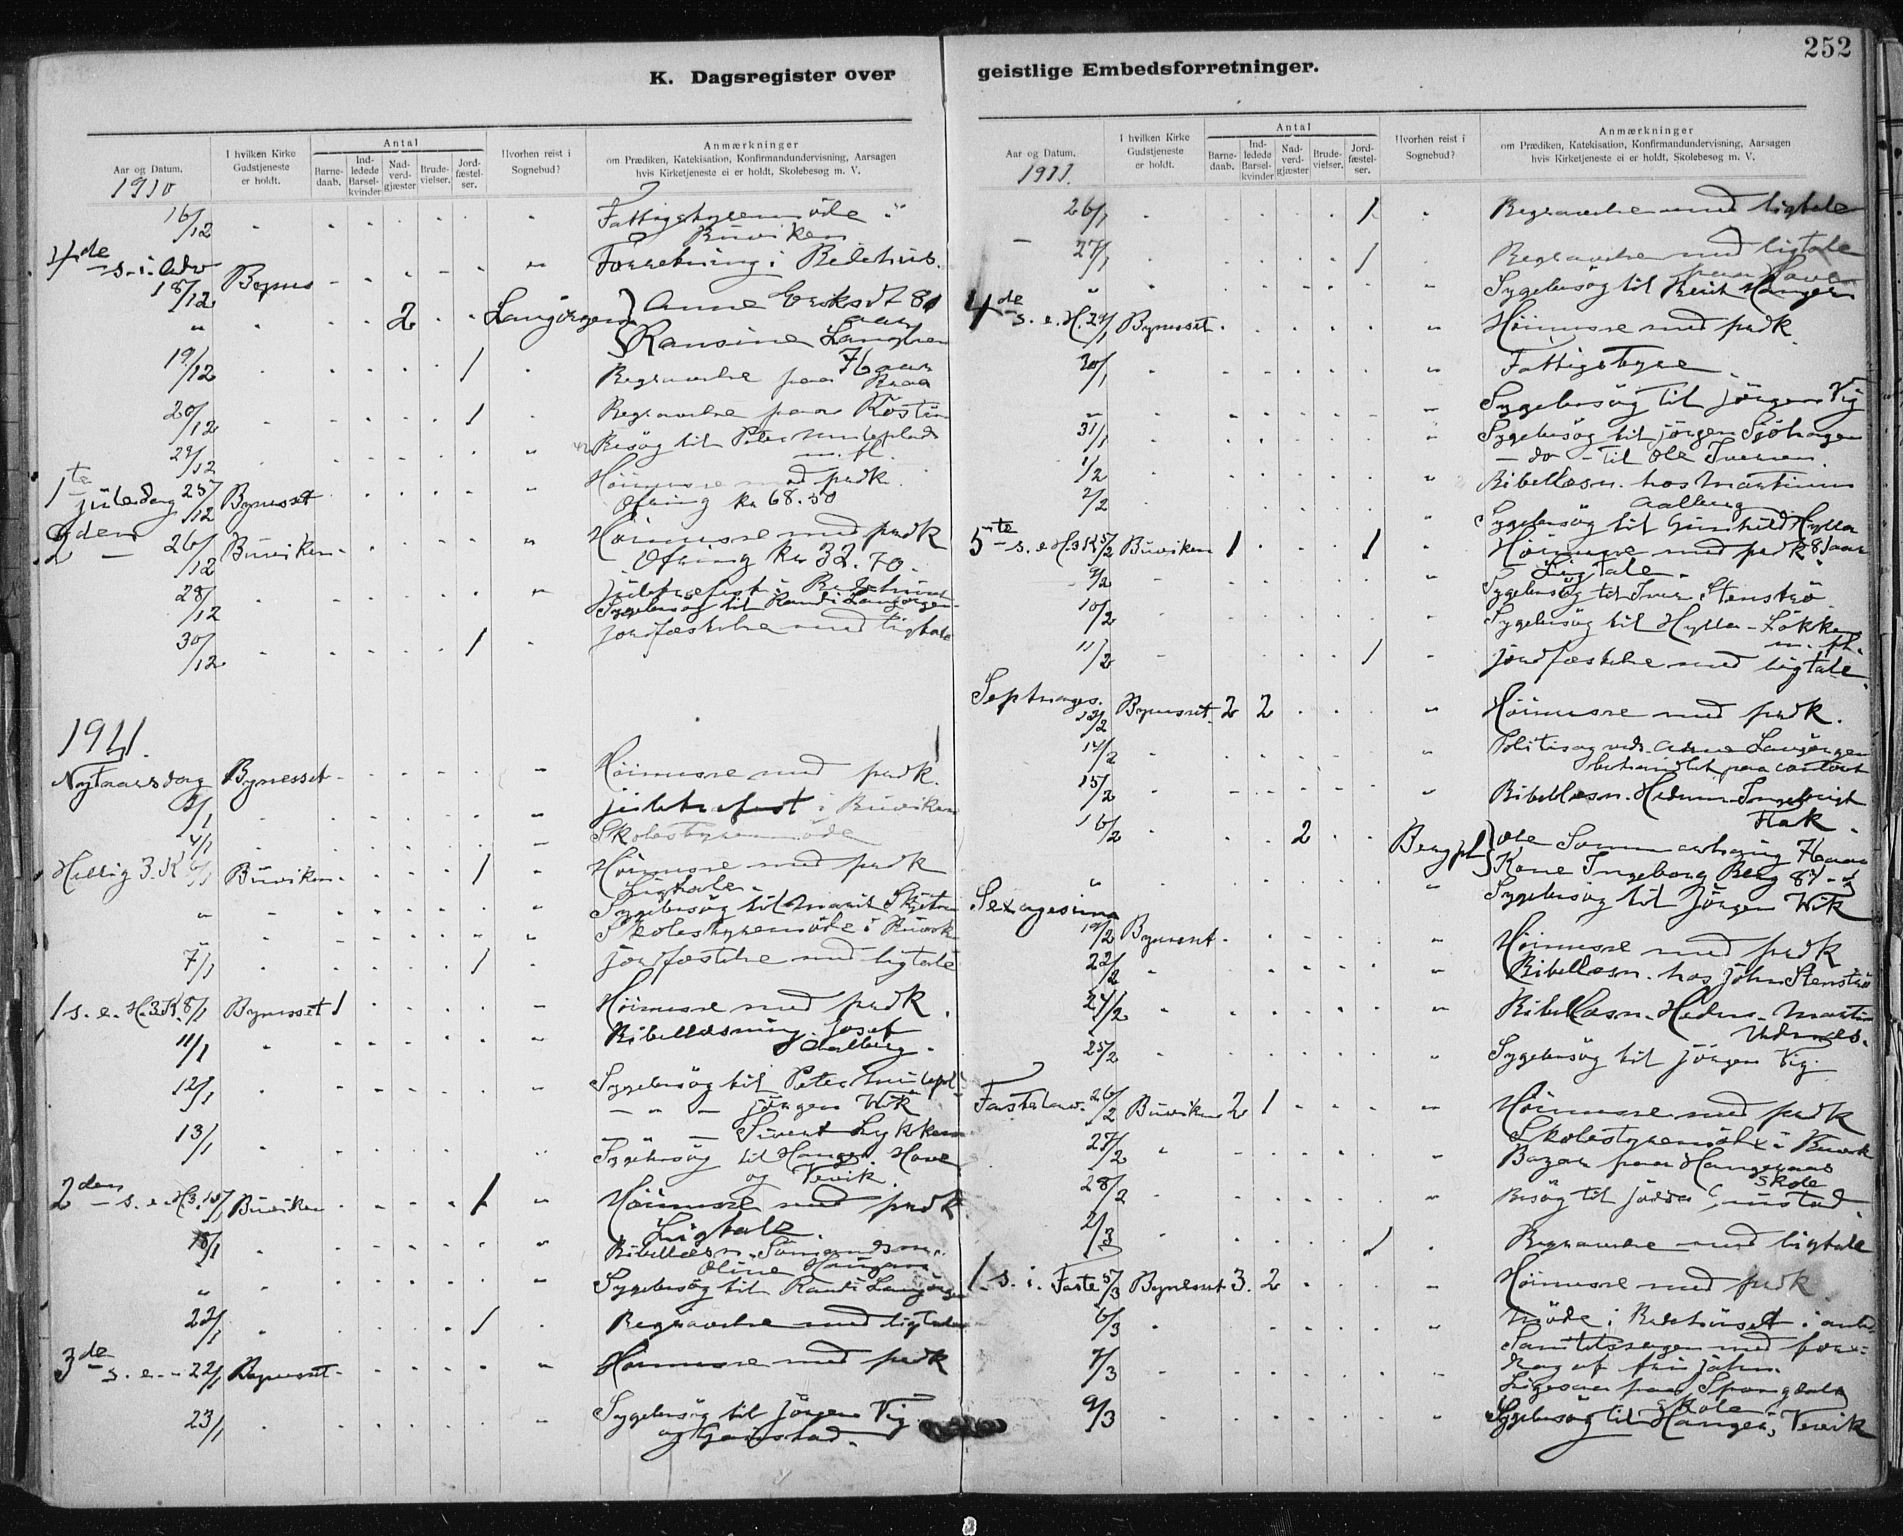 252
K. Dagsregister over geistlige Embedsforretninger.
Aar og Datum.
I hvilken Kirke Gudstjeneste er holdt.
Antal
Barne-daab.
Ind-ledede Barsel-kvinder
Nad-verd-gjæster
Brude-vielser.
Jord-fæstel-ser.
Hvorhen reist i Sognebud?
Anmærkninger
om Prædiken, Katekisation, Konfirmandundervisning, Aarsagen
hvis Kirketjeneste ei er holdt, Skolebesøg m. V.
1910
16/12 Fattigstyremöde i
Buviken
4de s. i. Adv 18/12 Bynes Forretning i Bedehus.
" 2 Langörgen Anne Eriksdt 81
aar
Ransine
76 aar
19/12 1 Begravelse paa Braa
20/12 1 Begravelse paa
29/12 Besög til Peter
m. fl.
1te juledag 25/12 Bynesset Höimesse med prdk.
Ofring kr 68.50
2den - 26/12 Buviken Höimesse med prdk
Ofring kr 32.70.
28/12 juletrefest i Bedehuset
Sygebesög til Randi Langörgen
30/12 1 jordfæstelse med ligtale
1911.
Nytaarsdag Bynesset Höimesse med prdk.
3/1 juletrefest i Buviken
4/1 Skolestyremöde
Hellig 3. K 6/1 Buviken 1 Höimesse med prdk
Ligtale.
" Sygebesög til Marit Skjetne
Skolestyremöde i Buvik
7/1 1 jordfæstelse med ligtale
1 s. e. H.3K. 8/1 Bynesset 1 Höimesse med prdk.
11/1 Bibellæsning. Josef
Aalberg.
12/1 Sygebesög til Peter
- " - jörgen Vik
13/1 — Sivert Lykken
Sygebesög til Hangen, Hove
og Vevik.
2den s. e. H3. 15/1 Buviken 1 Höimesse med prdk
Ligtale.
18/1 Bibellæsn.
Oline Haugen
" Sygebesög til Randi Langörgen
22/1 1 Begravelse med ligtale
3de s. e. - 22/1 Bynesset Höimesse med prdk
23/1 Sygebesög til jörgen Vig
og Gaustad.
Aar og Datum.
I hvilken Kirke Gudstjeneste er holdt.
Antal
Barne-daab.
Ind-ledede Barsel-kvinder
Nad-verd-gjæster
Brude-vielser.
Jord-fæstel-ser.
Hvorhen reist i Sognebud?
Anmærkninger
om Prædiken, Katekisation, Konfirmandundervisning, Aarsagen
hvis Kirketjeneste ei er holdt, Skolebesøg m. V.
1911.
26/1 1 Begravelse med ligtale
27/1 1 Begravelse med ligtale
paa Hove
" Sygebesög til Hangen
4de s. e. H. 29/1 Bynesset Höimesse med prdk.
30/1 Fattigstyre.
" Sygebesög til jörgen Vig
31/1 Sygebesög til jörgen Sjöhagen
- do - til Ole Iversen.
1/2 Bibellæsn. hos Martinus
Aalberg
2/2 Sygebesög til Gunhild Hylla
81 aar
5te s. e H.3K 5/2 Buviken 1 1 Höimesse med prdk.
Ligtale.
9/2 Sygebesög til Iver Stenströ
10/2 Sygebesög til Hylla-Lökken
m. fl.
11/2 1 jordfæstelse med ligtale.
Septuages. 12/2 Bynesset. 2 2 Höimesse med prdk.
14/2 Politisag vedr. Anne Langörgen
behandlet paa contoret
15/2 Bibellæsn. Hedning Ingebrigt
Flak.
16/2 2 Bergpl Ole 76 aar
Kone Ingeborg Berg 81 -
" Sygebesög til Jörgen Vik
Sexagesima 19/2 Bynesset. Höimesse med prdk
22/2 Bibellæsn. hos john Stenströ
24/2 Bibellæsn. Hedn. Martin
25/2 Sygebesög til jörgen Vig.
Fastelav. 26/2 Buviken 2 1 Höimesse med prdk
27/2 Skolestyremöde i Buvik
Bazar paa Hangeraas
Skole
28/2 Besög til
2/3 1 Begravelse med ligtale
1 s. i. Faste 5/3 Bynesset 3. 2 Höimesse med prdk.
6/3 Möde i Bedehuset i anl.
Samtlssagen med fore-
drag af frk john.
7/3 Ligesaa paa Spongdals
skole
9/3 Sygebesög til Hangen, Vevik